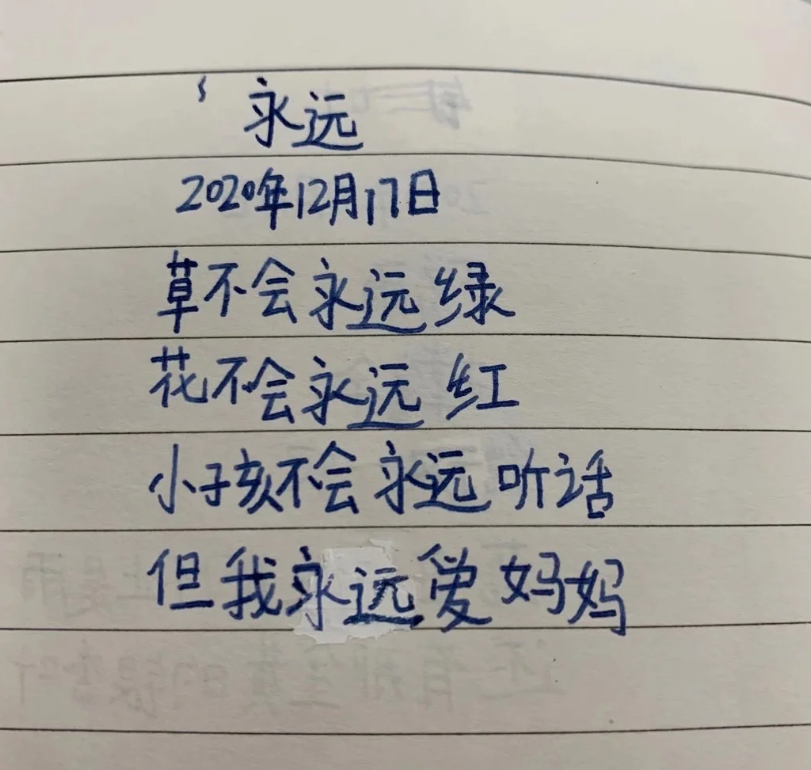 永远
2020年12月17日
草不会永远绿
花不会永远红
小孩不会永远听话
但我永远爱妈妈